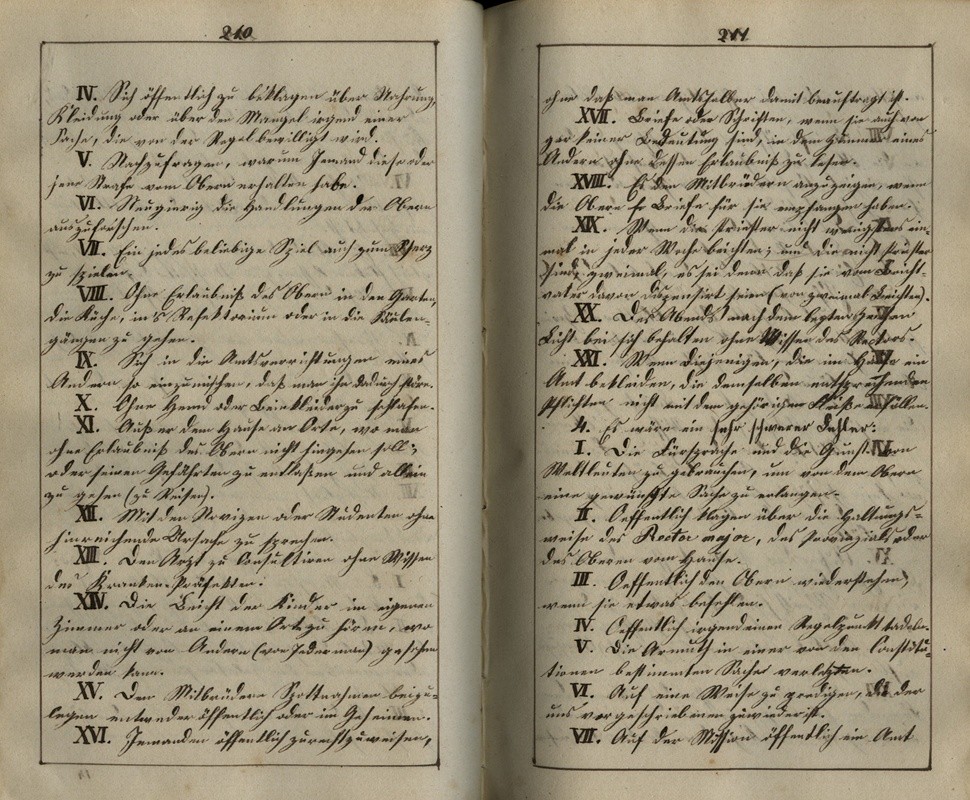 210
IV. Sich öffentlich zu beklagen über Nahrung,
Kleidung oder über den Mangel irgend einer
Sache, die von der Regel bewilligt wird.
V. Nachzufragen, warum Jemand diese oder
jene Strafe vom Obern erhalten habe.
VI. Neugierig die Handlungen der Obern
auszuforschen.
VII. Ein jedes beliebige Spiel auch zum Scherz
zu spielen.
VIII. Ohne Erlaubniß des Obern in den Garten,
die Küche, in's Refektorium oder in die Säulen-
gängen zu gehen.
IX. Sich in die Amtsverrichtungen eines
Andern so einzumischen, daß man ihn dadurch störe.
X. Ohne Hemd oder Beinkleider zu schlafen.
XI. Außer dem Hause an Orte, wo man
ohne Erlaubniß des Obern nicht hingehen soll;
oder seinen Gefährten zu entlassen und allein
zu gehen (zu Reisen).
XII. Mit den Novizen oder Studenten ohne
hinreichende Ursache zu sprechen.
XIII. Den Arzt zu konsultiren ohne Wissen
des Kranken-Präfekten.
XIV. Die Beicht der Kinder im eigenen
Zimmer oder an einem Orte zu hören, wo
man nicht von Andern (von Jederman) gesehen
werden kann.
XV. Den Mitbrüdern Spottnahmen beizu-
legen entweder öffentlich oder im Geheimen.
XVI. Jemanden öffentlich zurechtzuweisen,
211
ohne daß man Amtshalber damit beauftragt ist.
XVII. Briefe oder Schriften, wenn sie auch von
gar keiner Bedeutung sind, in dem Zimmer eines
Andern ohne dessen Erlaubniß zu lesen.
XVIII. Es den Mitbrüdern anzuzeigen, wenn
die Obern Briefe für sie empfangen haben.
XIX. Wenn die Priester nicht wenigstens ein-
mal in jeder Woche beichten; und die nicht Priester
sind, zweimal, es sei denn daß sie vom Beicht-
vater davon dispensirt seien (von zweimal Beichten).
XX. Des Abends nach dem letzten Zeichen
Licht bei sich behalten ohne Wissen des Rectors.
XXI. Wenn Diejenigen, die im Hause ein
Amt bekleiden, die demselben entsprechenden
Pflichten nicht mit dem gehörigen Fleiße erfüllen.
4. Es wäre ein sehr schwerer Fehler:
I. Die Fürsprache und die Gunst von
Weltleuten zu gebrauchen, um von dem Obern
eine gewünschte Sache zu erlangen.
II. Oeffentlich klagen über die Haltungs-
weise des Rector major, des Provinzials oder
des Oberen vom Hause.
III. Oeffentlich den Obern wiederstehen,
wenn sie etwas befehlen.
IV. Oeffentlich irgend einen Regelpunkt tadeln.
V. Die Armuth in einer von den Constitu-
tionen bestimmten Sache verletzen.
VI. Auf eine Weise zu predigen, die der
uns vorgeschriebenen zuwider ist.
VII. Auf der Mission öffentlich ein Amt